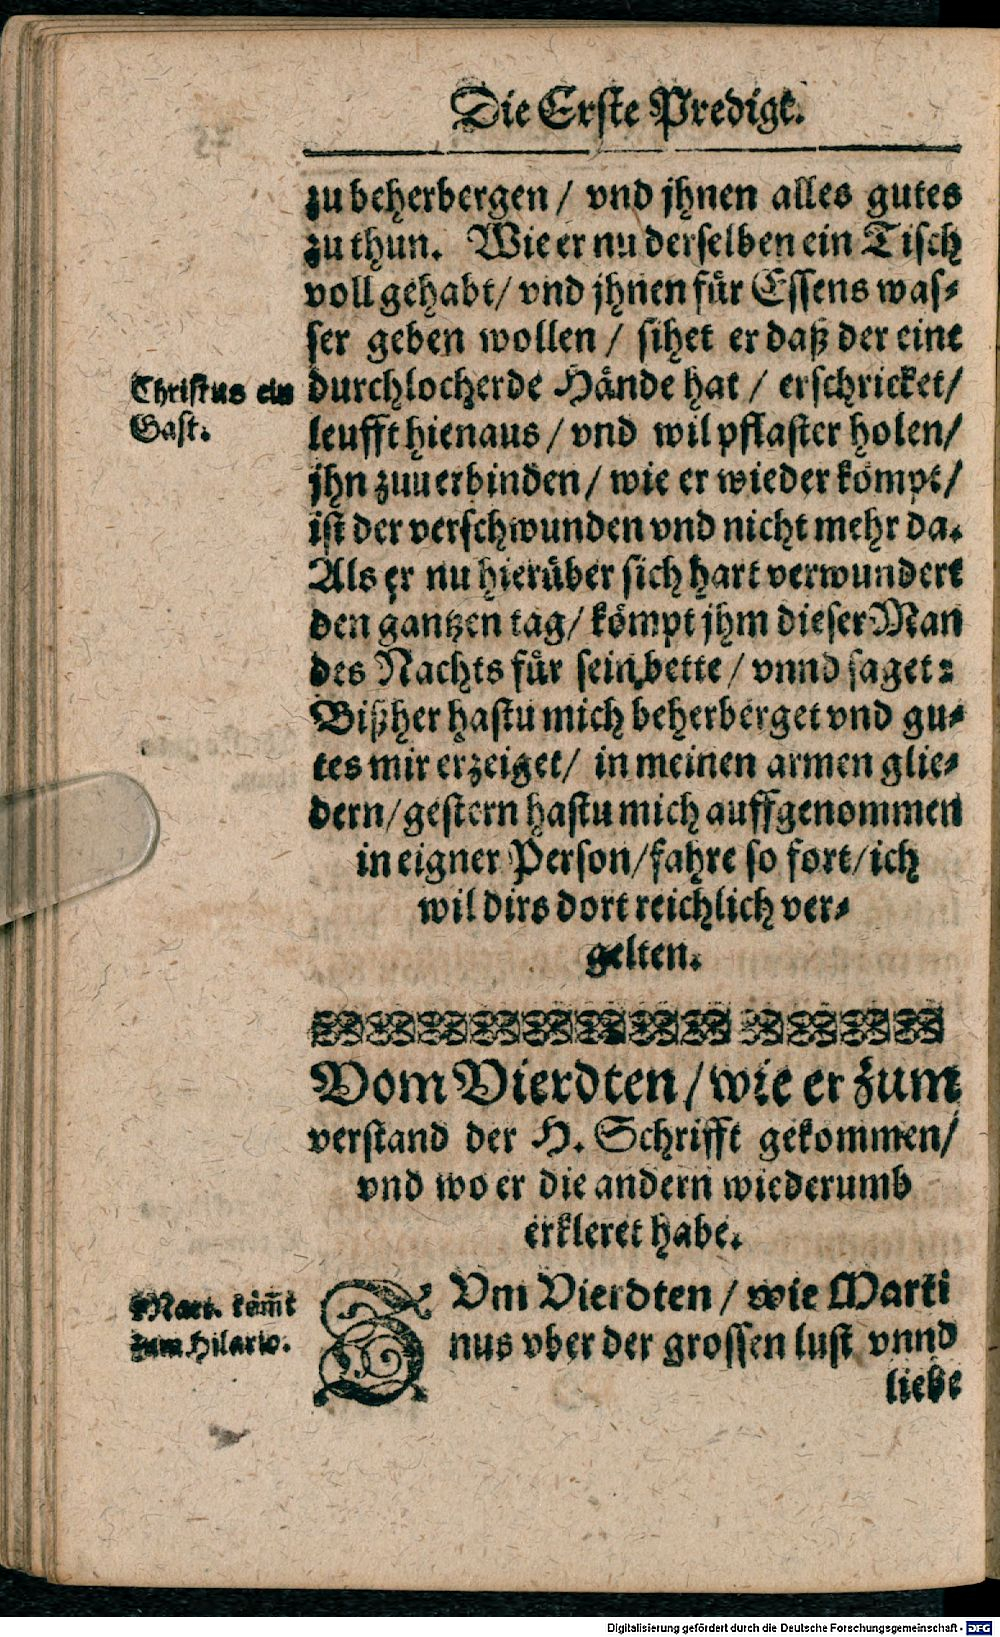 Die Erste Predigt.
zu beherbergen / vnd jhnen alles gutes
zu thun. Wie er nu derselben ein Tisch
voll gehabt / vnd jhnen für Essens was-
ser geben wollen / sihet er daß der eine
Christus ein
Gast.
durchlocherde Hände hat / erschricket /
leufft hienaus / vnd wil pflaster holen /
jhn zuuerbinden / wie er wieder kömpt /
ist der verschwunden vnd nicht mehr da.
Als er nu hierüber sich hart verwundert
den gantzen tag / kömpt jhm dieser Man
des Nachts für sein bette / vnnd saget:
Bißher hastu mich beherberget vnd gu-
tes mir erzeiget / in meinen armen glie-
dern / gestern hastu mich auffgenommen
in eigner Person / fahre so fort / ich
wil dirs dort reichlich ver-
gelten.
Vom Vierdten / wie er zum
verstand der H. Schrifft gekommen /
vnd wo er die andern wiederumb
erkleret habe.
Mart. kömt
zum Hilario.
ZVm Vierdten / wie Marti
nus vber der grossen lust vnnd
liebe
Digitalisierung gefördert durch die Deutsche Forschungsgemeinschaft - DFG